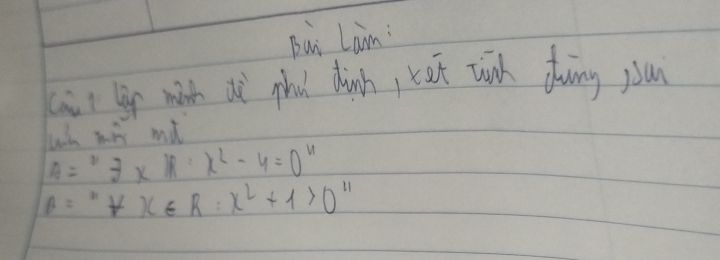 Bài Làm:
Câu 1 lập mệnh đề phủ định, xét tính đúng, sai
mỗi mđ
A = " ∃ x R : x² - 4 = 0 "
B = " ∀ x ∈ R : x² + 1 > 0 "